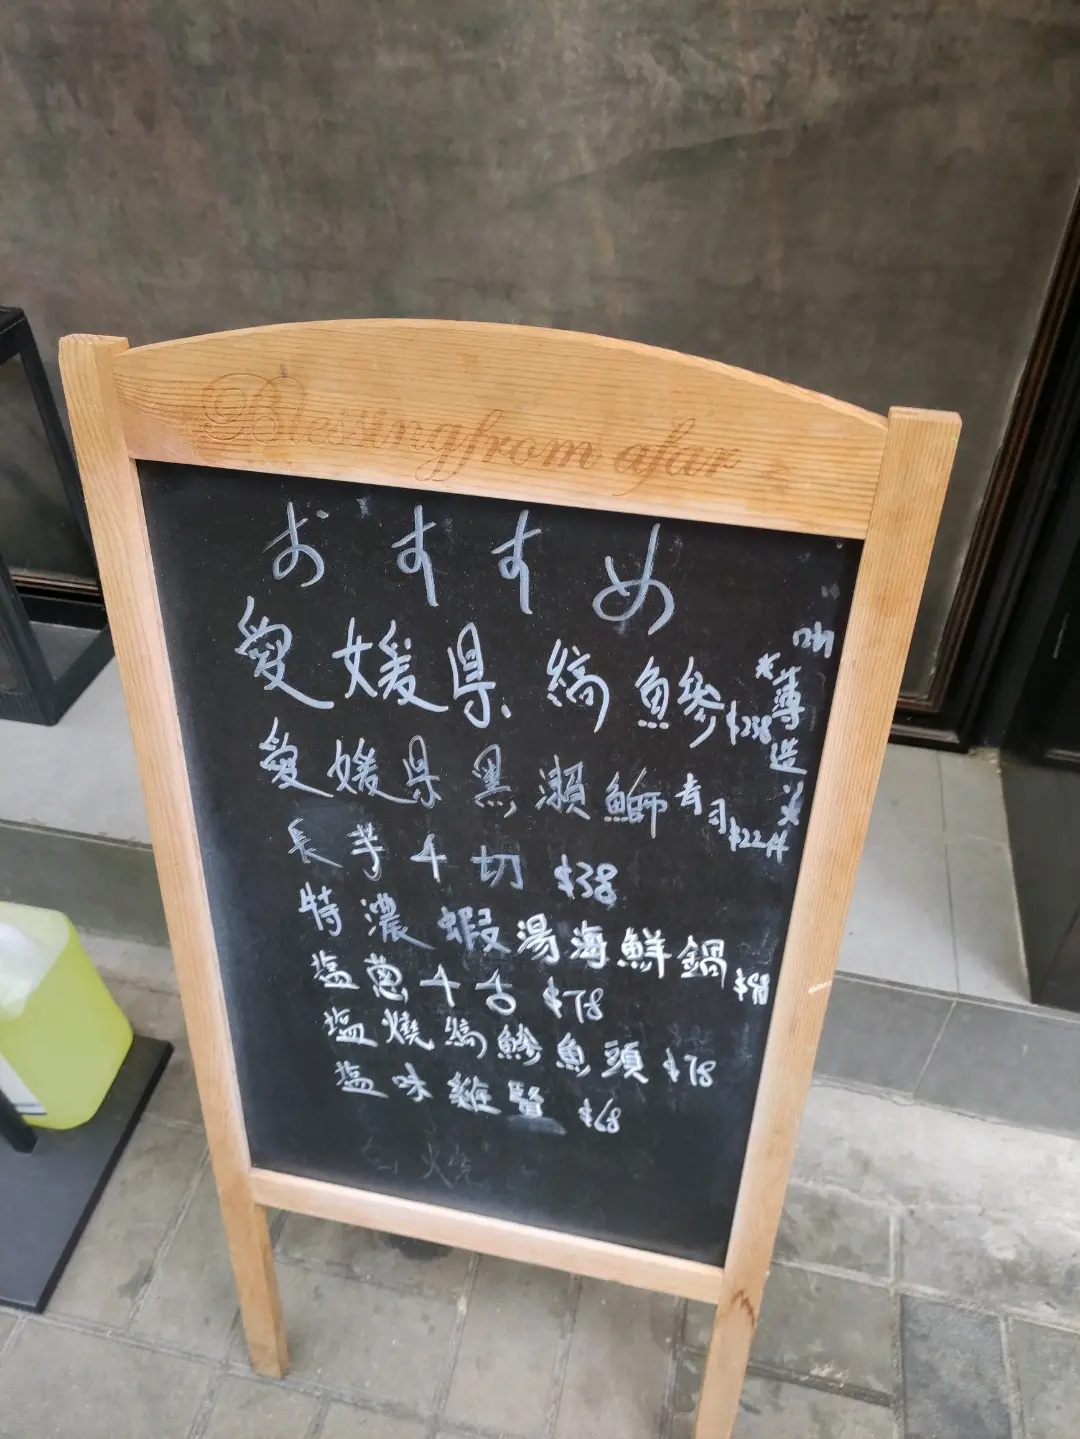 Blessing from afar
おすすめ
愛媛県 縞魚鰺 $238
*薄造
愛媛県黒瀨鰤寿司 $22/件
長芋千切 $38
特濃蝦湯海鮮鍋 $98
塩葱牛舌 $78
塩燒縞鰺魚頭 $78
塩味雞腎 $68